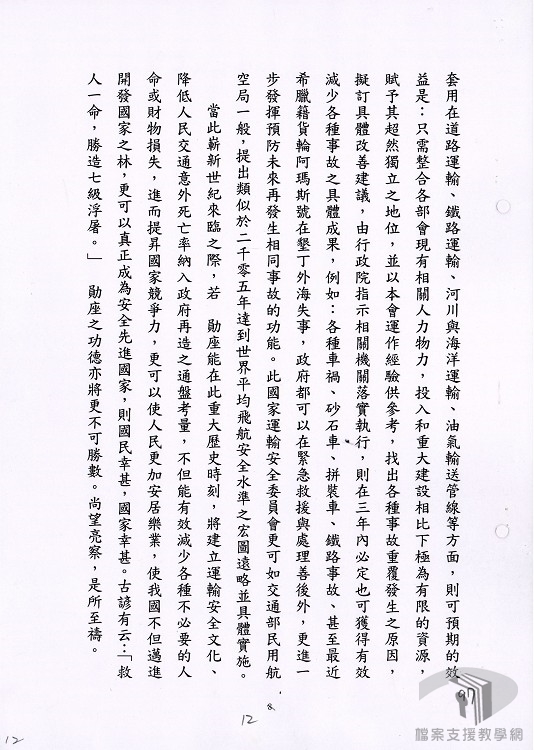 套用在道路運輸、鐵路運輸、河川與海洋運輸、油氣輸送管線等方面，則可預期的效
益是：只需整合各部會現有相關人力物力，投入和重大建設相比下極為有限的資源，
賦予其超然獨立之地位，並以本會運作經驗供參考，找出各種事故重覆發生之原因，
擬訂具體改善建議，由行政院指示相關機關落實執行，則在三年內必定也可獲得有效
減少各種事故之具體成果，例如：各種車禍、砂石車、拼裝車、鐵路事故、甚至最近
希臘籍貨輪阿瑪斯號在墾丁外海失事，政府都可以在緊急救援與處理善後外，更進一
步發揮預防未來再發生相同事故的功能。此國家運輸安全委員會更可如交通部民用航
空局一般，提出類似於二千零五年達到世界平均飛航安全水準之宏圖遠略並具體實施。
當此嶄新世紀來臨之際，若　勛座能在此重大歷史時刻，將建立運輸安全文化、
降低人民交通意外死亡率納入政府再造之通盤考量，不但能有效減少各種不必要的人
命或財物損失，進而提昇國家競爭力，更可以使人民更加安居樂業，使我國不但邁進
開發國家之林，更可以真正成為安全先進國家，則國民幸甚，國家幸甚。古諺有云：「救
人一命，勝造七級浮屠。」　勛座之功德亦將更不可勝數。尚望亮察，是所至禱。
8
12
12
97
檔案支援教學網